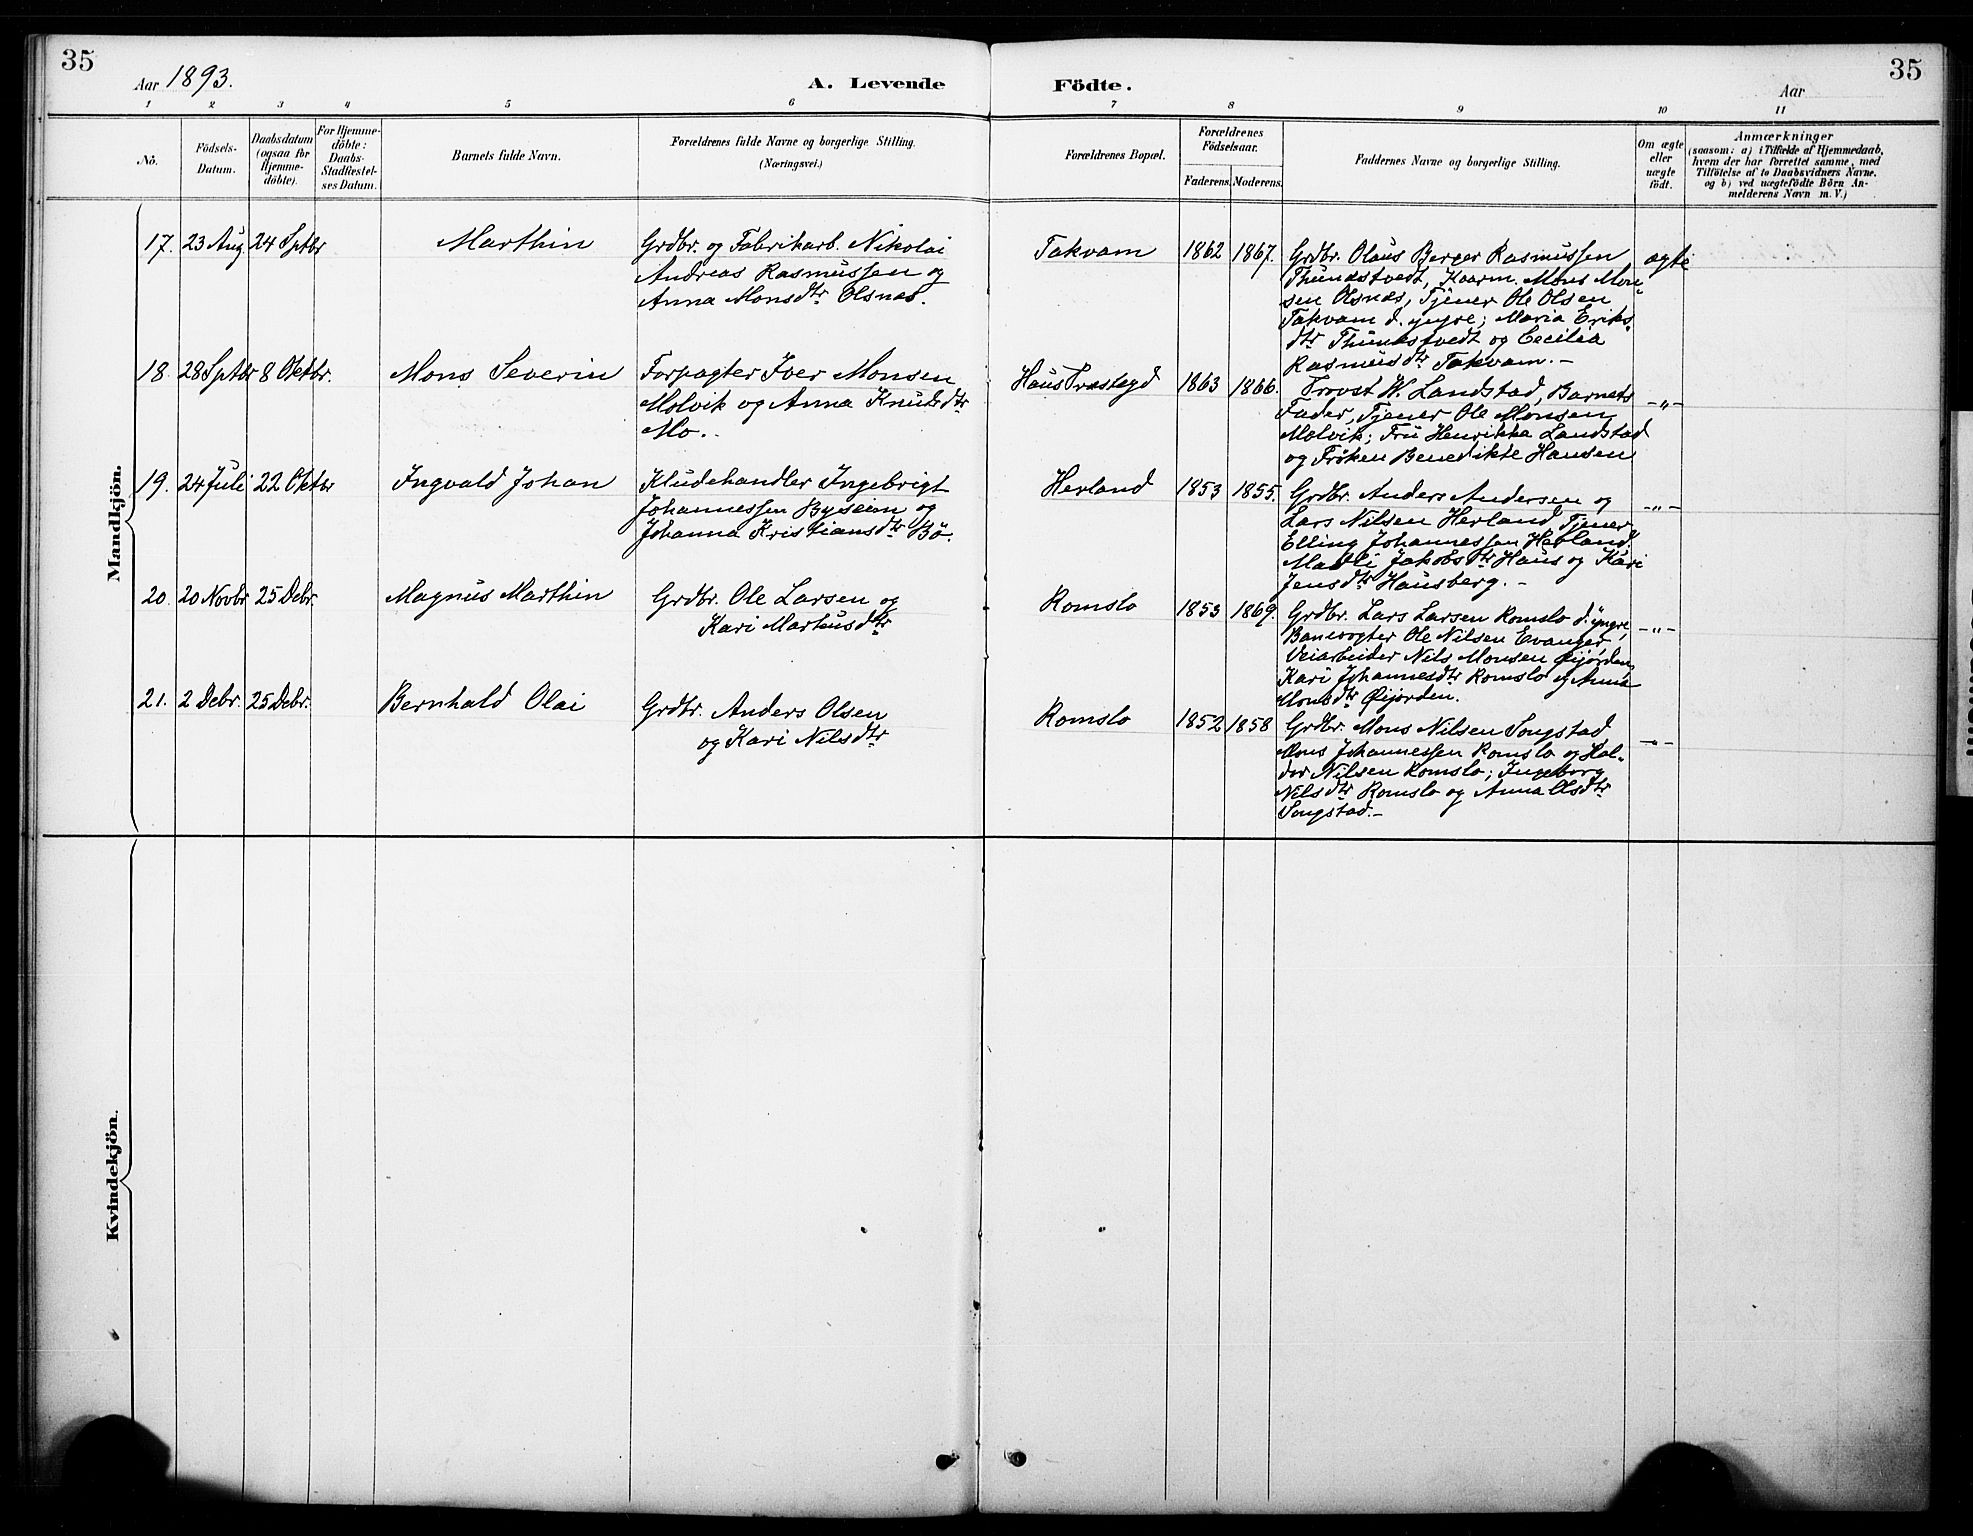 35
Aar 1893.
A. Levende
Födte.
Aar
35
1 2 3 4 5 6 7 8 9 10 11
No.
Födsels-
Datum.
Daabsdatum
(ogsaa for
Hjemme-
döbte).
For Hjemme-
döbte:
Daabs-
Stadfestel-
ses Datum.
Barnets fulde Navn.
Forældrenes fulde Navne og borgerlige Stilling.
(Næringsvei.)
Forældrenes Bopæl.
Forældrenes
Födselsaar.
Faderens. Moderens.
Faddernes Navne og borgerlige Stilling.
Om ægte
eller
uægte
födt.
Anmærkninger
(saasom: a) i Tilfælde af Hjemmedaab,
hvem der har forrettet samme, med
Tilföielse af to Daabsvidners Navne.
og b) ved uægtefödte Börn An-
melderens Navn m. V.)
Mandkjön.
17. 23 Aug. 24 Sptbr Marthin
Grdbr. og Fabrikarb. Nikolai
Andreas Rasmussen og
Anna Monsdtr Olsnæs.
Takvam 1862 1867.
Grdbr. Olaus Berger Rasmussen
Thunæstvedt, Kaarm. Mons Mon-
sen Olsnæs, Tjener Ole Olsen
Takvam d. yngre; Maria Eriks-
dtr Thunæstvedt og Cecilia
Rasmusdtr Takvam.-
ægte
18. 28 Sptbr 8 Oktbr. Mons Severin
Forpagter Iver Monsen
Molvik og Anna Knudsdtr
Mo.
Haus Præstegd 1863 1866.
Provst W. Landstad, Barnets
Fader, Tjener Ole Monsen
Molvik; Fru Henrikka Landstad
og Fröken Benedikte Hansen
-"-
19. 24 Juli 22 Oktbr Ingvald Johan
Kludehandler Ingebrigt
Johannessen Byseim og
Johanna Kristiansdtr Bö.
Herland 1853 1855.
Grdbr. Anders Andersen og
Lars Nilsen Herland, Tjener
Elling Johannessen Herland,
Madli Jakobsdtr Haus og Kari
Jensdtr Hausberg.-
-"-
20. 20 Novbr 25 Debr. Magnus Marthin
Grdbr. Ole Larsen og
Kari Martensdtr
Romslo 1853 1869.
Grdbr. Lars Larsen Romslo d. yngre,
Banevogter Ole Nilsen Evanger,
Veiarbeider Nils Monsen Øijorden,
Kari Johannesdtr Romslo og Anna
Monsdtr Øijorden.
-"-
21. 2 Debr. 25 Debr. Bernhald Olai
Grdbr. Anders Olsen
og Kari Nilsdtr
Romslo 1852 1858
Grdbr. Mons Nilsen Songstad
Mons Johannessen Romslo og Hal-
dor Nilsen Romslo; Ingeborg
Nilsdtr Romslo og Anna Olsdtr
Songstad.-
-"-
Kvindekjön.